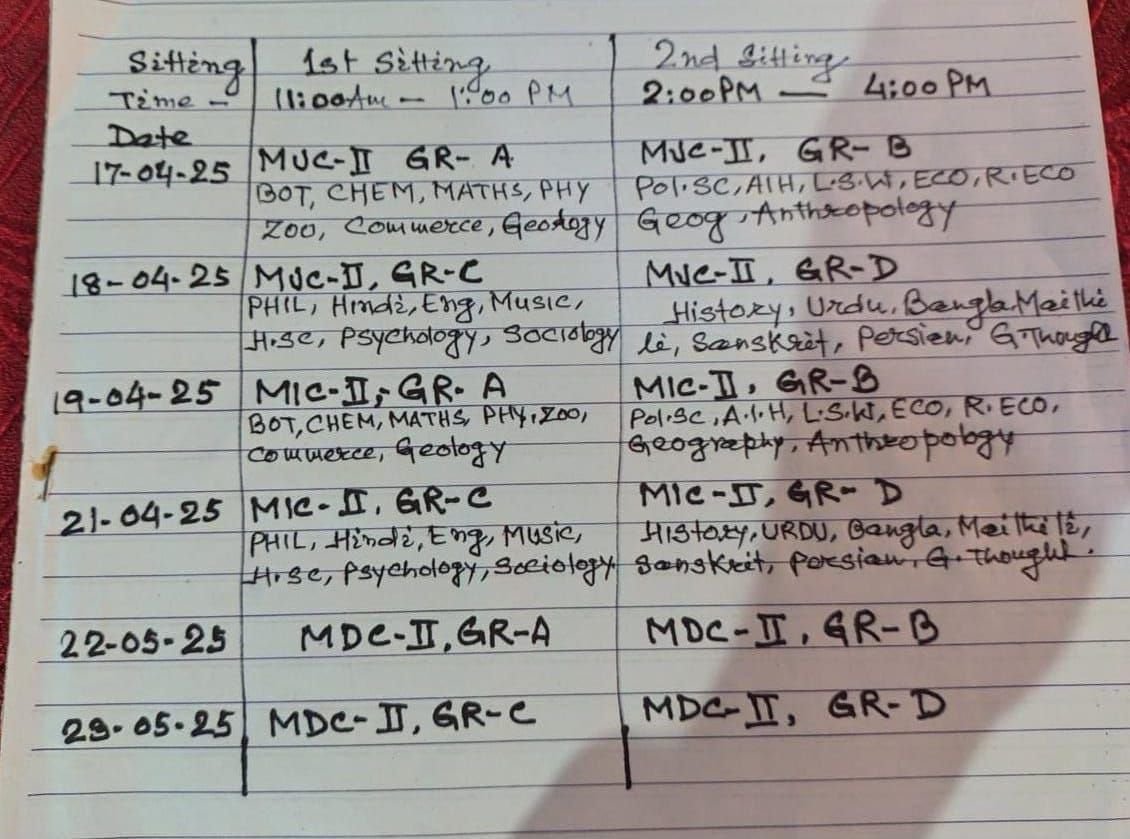 Sitting 1st Sitting 2nd Sitting
Time - 11:00Am - 1:00 PM 2:00PM - 4:00PM
Date
17-04-25 MJC-II GR- A MJC-II, GR- B
BOT, CHEM, MATHS, PHY Pol.SC, AIH, L.S.W, ECO, R.ECO
ZOO, Commerce, Geology Geog, Anthropology
18-04-25 MJC-II, GR-C MJC-II, GR-D
PHIL, Hindi, Eng, Music, History, Urdu, Bangla, Maithi
H.SC, Psychology, Sociology li, Sanskrit, Persian, G.Thought
19-04-25 MIC-II, GR- A MIC-II, GR-B
BOT, CHEM, MATHS, PHY, ZOO, Pol.SC, A.I.H, L.S.W, ECO, R.ECO,
Commerce, Geology Geography, Anthropology
21-04-25 MIC-II, GR-C MIC-II, GR- D
PHIL, Hindi, Eng, Music, HIStory, URDU, Bangla, Maithili,
H.SC, Psychology, Sociology Sanskrit, Persian, G. Thought.
22-05-25 MDC-II, GR-A MDC-II, GR-B
23-05-25 MDC-II, GR-C MDC-II, GR-D